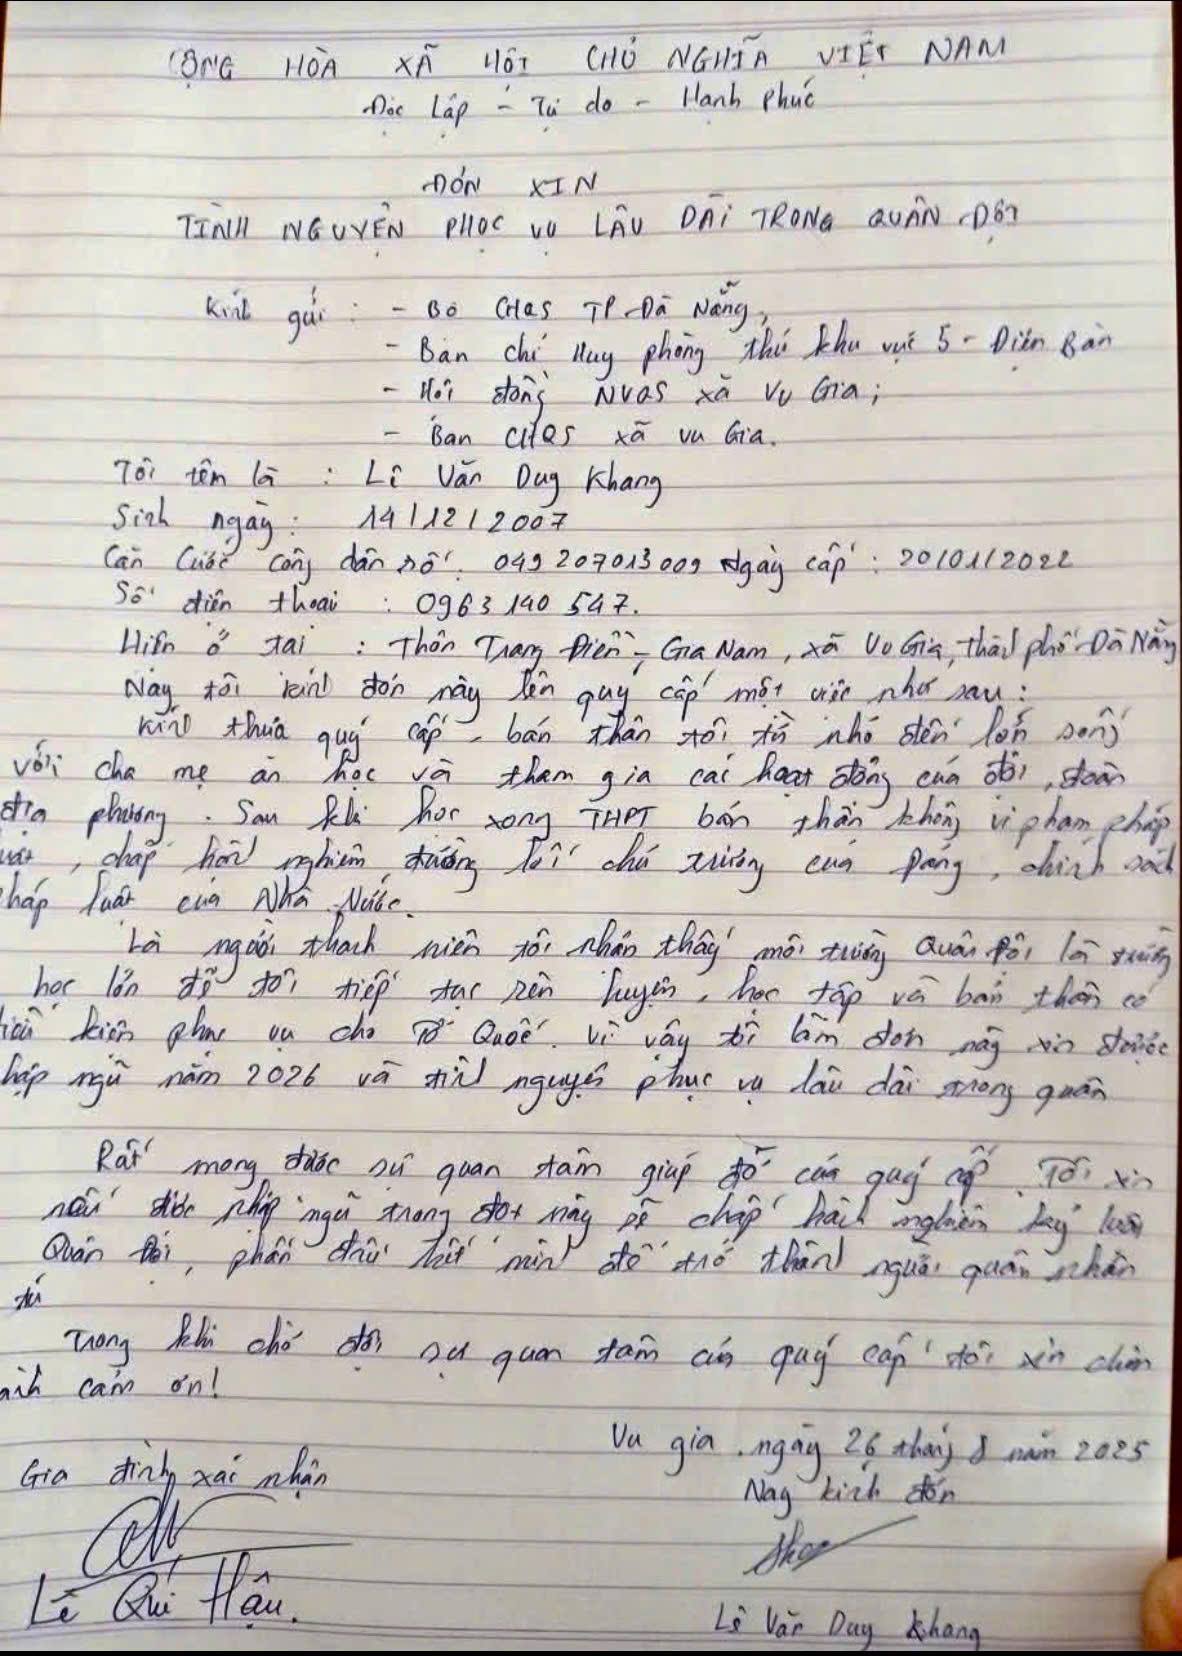 CỘNG HÒA XÃ HỘI CHỦ NGHĨA VIỆT NAM
Độc Lập - Tự do - Hạnh phúc
ĐƠN XIN
TÌNH NGUYỆN PHỤC VỤ LÂU DÀI TRONG QUÂN ĐỘI
Kính gửi : - Bộ CHQS TP Đà Nẵng,
- Ban chỉ Huy phòng thủ khu vực 5 - Điện Bàn
- Hội đồng NVQS xã Vu Gia;
- Ban CHQS xã Vu Gia.
Tôi tên là : Lê Văn Duy Khang
Sinh ngày : 14/12/2007
Căn Cước công dân số : 049207013009 Ngày cấp : 20/01/2022
Số điện thoại : 0963 140 547.
Hiện ở tại : Thôn Trang Điền, Gia Nam, xã Vu Gia, thành phố Đà Nẵng
Nay tôi kính đơn này lên quý cấp một việc như sau :
Kính thưa quý cấp, bản thân tôi từ nhỏ đến lớn sống
với cha mẹ ăn học và tham gia các hoạt động của đội, đoàn
địa phương. Sau khi học xong THPT bản thân không vi phạm pháp
luật, chấp hành nghiêm đường lối chủ trương của Đảng, chính sách
pháp luật của Nhà Nước.
Là người thanh niên tôi nhận thấy môi trường Quân Đội là trường
học lớn để tôi tiếp tục rèn luyện, học tập và bản thân có
điều kiện phục vụ cho Tổ Quốc. Vì vậy tôi làm đơn này xin được
nhập ngũ năm 2026 và tình nguyện phục vụ lâu dài trong quân
Rất mong được sự quan tâm giúp đỡ của quý cấp. Tôi xin
nếu được nhập ngũ trong đợt này sẽ chấp hành nghiêm kỷ luật
Quân Đội, phấn đấu hết mình để trở thành người quân nhân
tú
Trong khi chờ đợi sự quan tâm của quý cấp tôi xin chân
thành cảm ơn!
Vu gia, ngày 26 tháng 8 năm 2025
Gia đình xác nhận
Nay kính đơn
Lê Quí Hậu.
Lê Văn Duy Khang